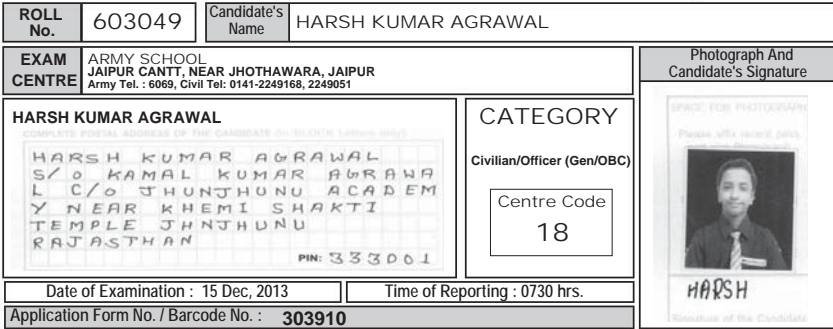 ROLL No. 603049 Candidate's Name HARSH KUMAR AGRAWAL
EXAM CENTRE
ARMY SCHOOL
JAIPUR CANTT, NEAR JHOTHAWARA, JAIPUR
Army Tel. : 6069, Civil Tel: 0141-2249168, 2249051
Photograph And
Candidate's Signature
HARSH KUMAR AGRAWAL
COMPLETE POSTAL ADDRESS OF THE CANDIDATE (In BLOCK Letters only)
HARSH KUMAR AGRAWAL
S/o KAMAL KUMAR AGRAWA
L C/o JHUNJHUNU ACADEM
Y NEAR KHEMI SHAKTI
TEMPLE JHNJHUNU
RAJASTHAN
PIN: 333001
CATEGORY
Civilian/Officer (Gen/OBC)
Centre Code
18
SPACE FOR PHOTOGRAPH
Please affix recent pass
HARSH
Signature of the Candidate
Date of Examination : 15 Dec, 2013 Time of Reporting : 0730 hrs.
Application Form No. / Barcode No. : 303910